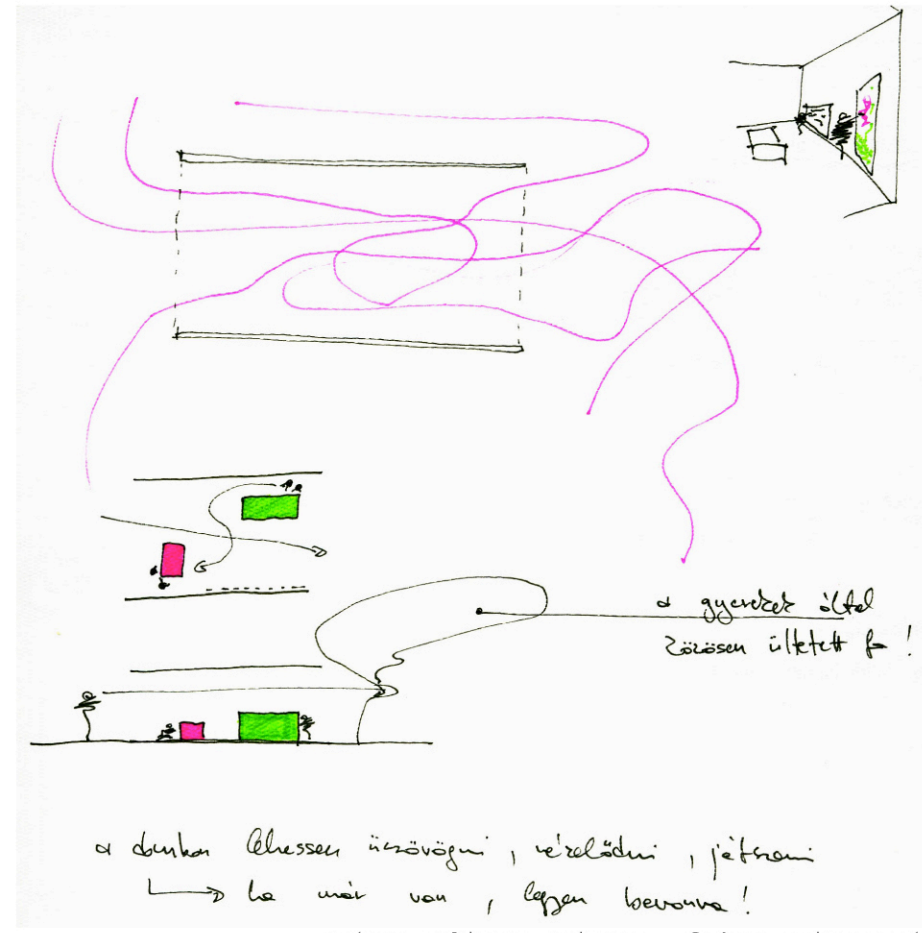 a gyerekek által
közösen ültetett fa !
a dombon lehessen üszövögni , nézelődni , játszani
ha már van , legyen bevonva !